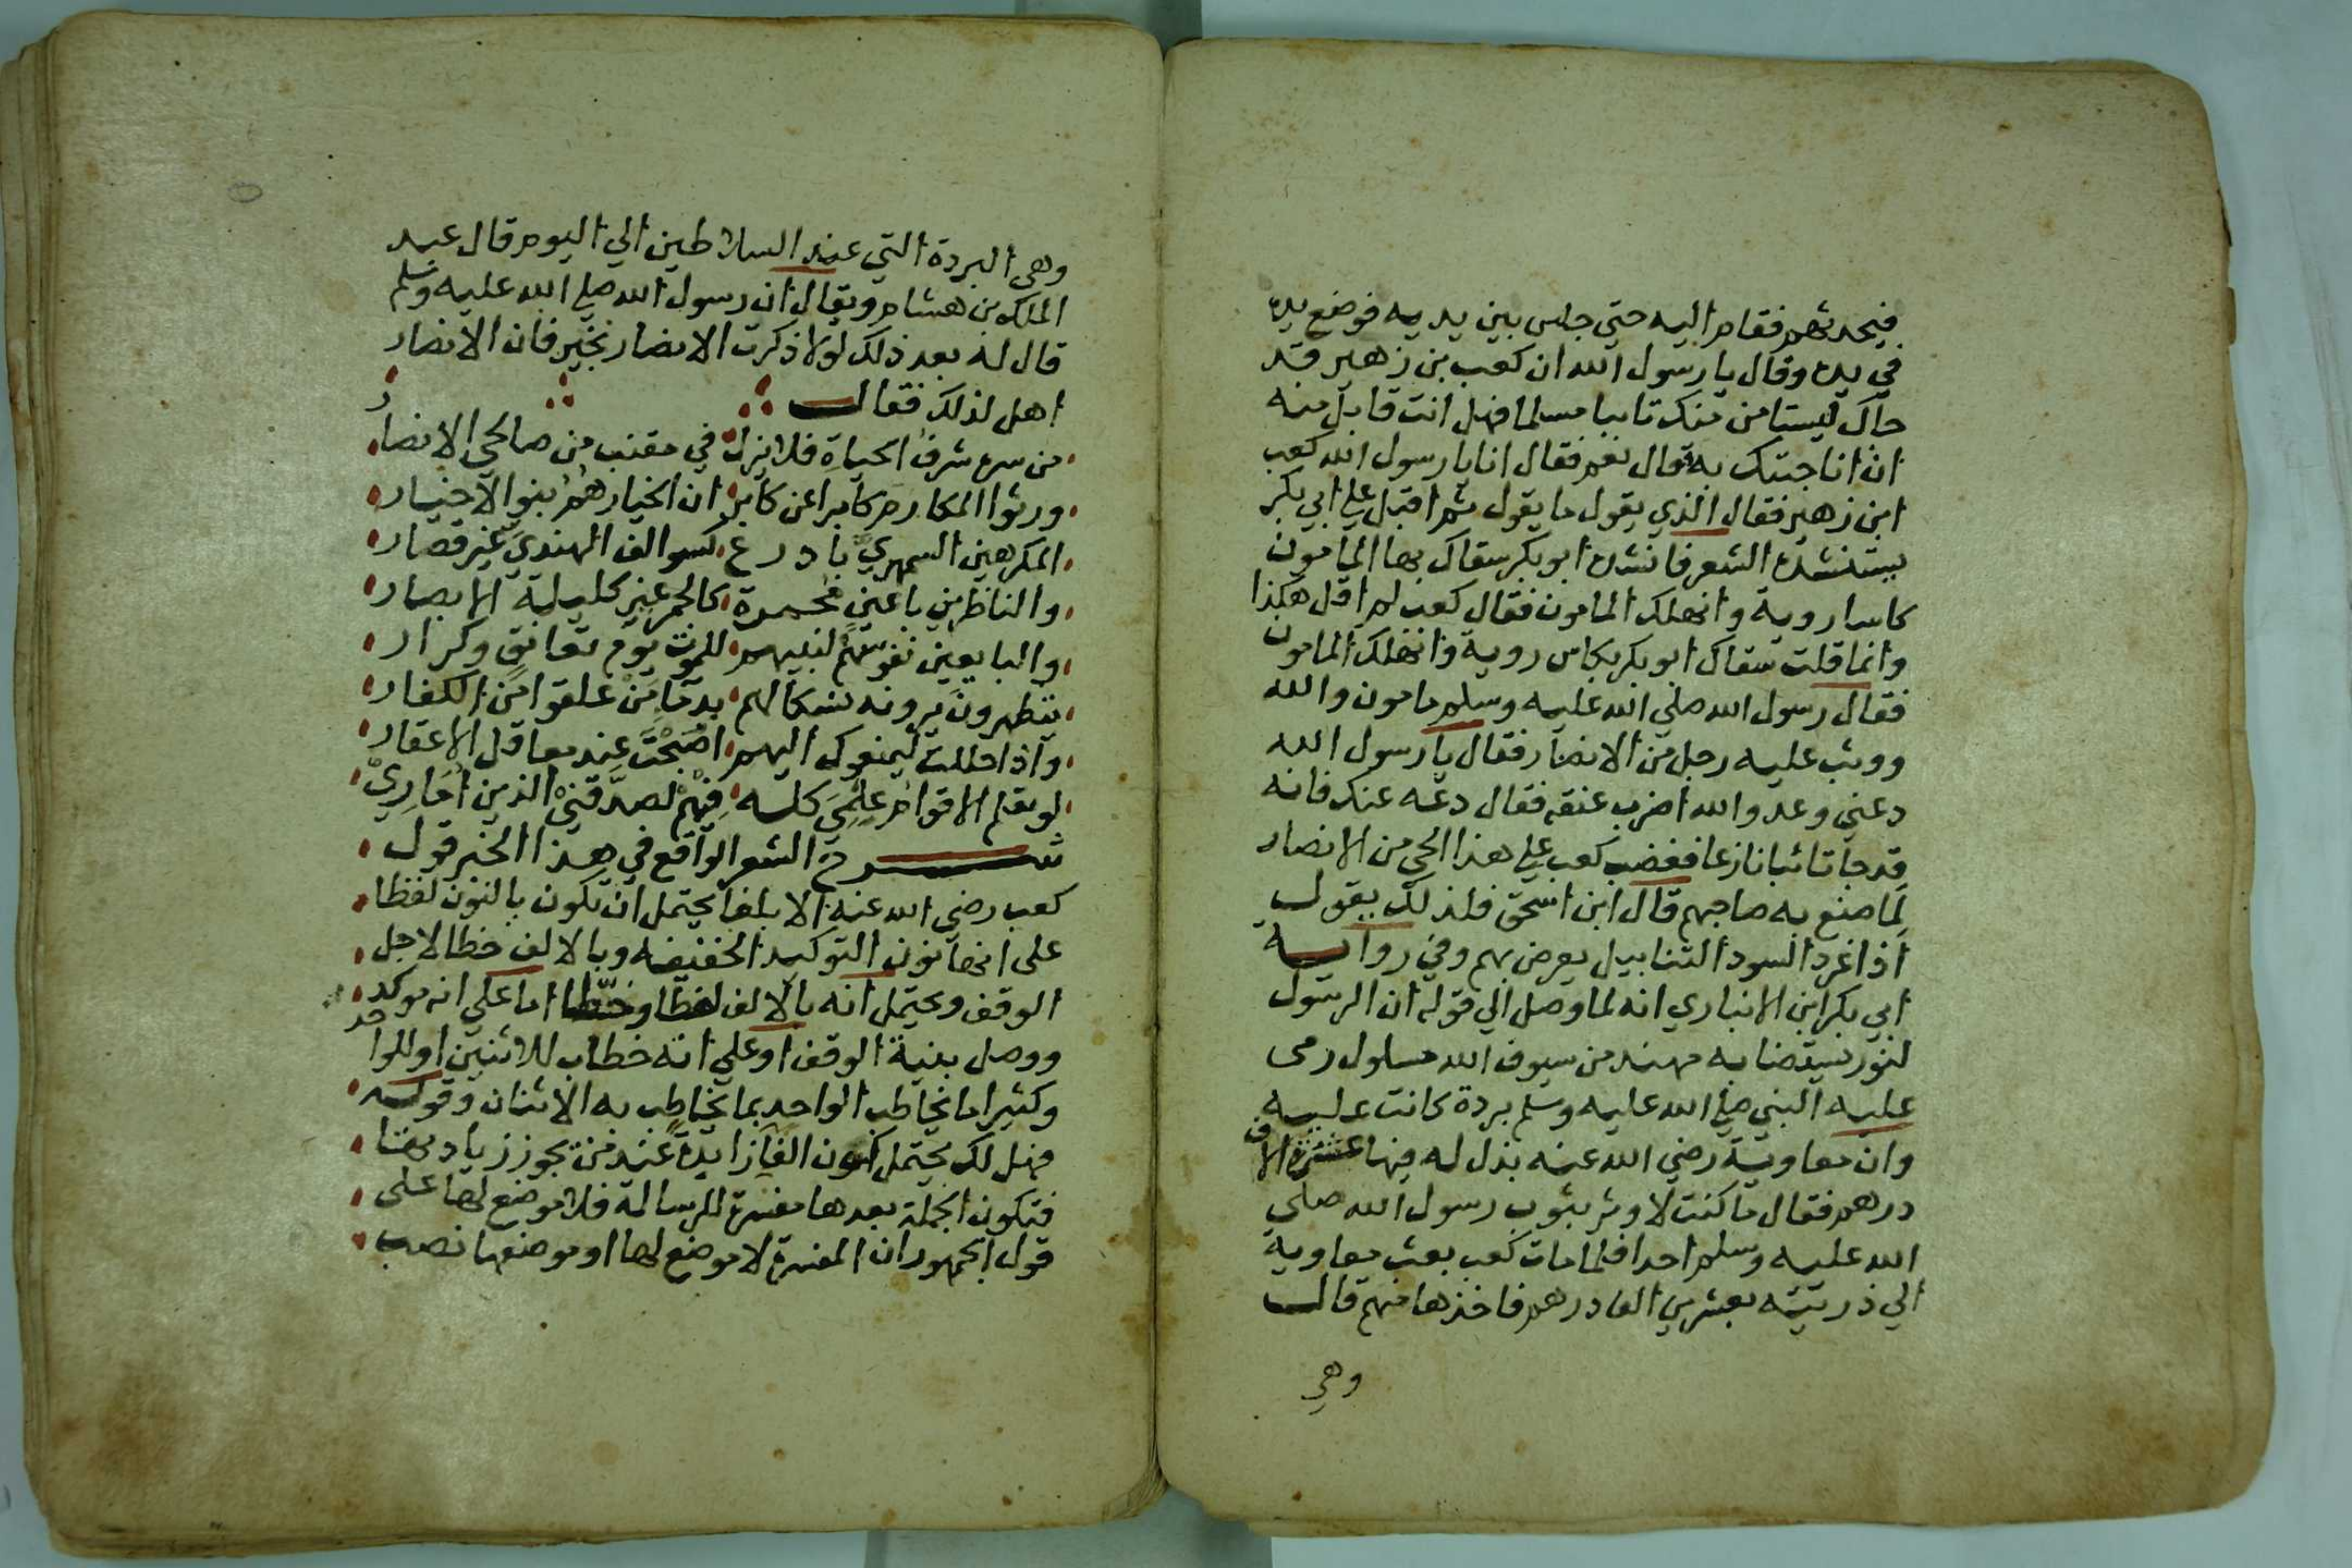 فيحدثهم فقام اليه حتي جلس بين يديه فوضع يده
في يده وقال يا رسول الله ان كعب بن زهير قد
جاك ليستامن منك تايبا مسلما فهل انت قابل منه
ان انا جيتك به قال نعم فقال انا يا رسول الله كعب
ابن زهير فقال الذي يقول ما يقول ثم اقبل علي ابي بكر
يستنشده الشعر فانشده ابو بكر سقاك بها المامون
كاسا روية وانهلك المامون فقال كعب لم اقل هكذا
وانما قلت سقاك ابو بكر بكاس روية وانهلك المامون
فقال رسول الله صلي الله عليه وسلم مامون والله
ووثب عليه رجل من الانصار فقال يا رسول الله
دعني وعدو الله اضرب عنقه فقال دعه عنك فانه
قد جا تائبا نازعا فغضب كعب علي هذا الحي من الانصار
لما صنع به صاحبهم قال ابن اسحق فلذلك يقول
اذا غرد السود التنابيل يعرض بهم وفي رواية
ابي بكر ابن الانباري انه لما وصل الي قوله ان الرسول
لنور يستضا به مهند من سيوف الله مسلول رمى
عليه النبي صلي الله عليه وسلم بردة كانت عليه
وان معاوية رضي الله عنه بذل له فيها عشرة الاف
درهم فقال ما كنت لاوثر بثوب رسول الله صلي
الله عليه وسلم احدا فلما مات كعب بعث معاوية
الي ذريته بعشرين الف درهم فاخذها منهم قال
وهي
وهي البردة التي عند السلاطين الي اليوم قال عبد
الملك بن هشام ويقال ان رسول الله صلي الله عليه وسلم
قال له بعد ذلك لولا ذكرت الانصار بخير فان الانصار
اهل لذلك فقال
من سره شرف الحياة فلا يزل في مقنب من صالحي الانصار
ورثوا المكارم كابرا عن كابر ان الخيار هم بنو الاخيار
المكرهين السمهري بادرع كسوالف الهندي غير قصار
والناظرين باعين محمرة كالجمر غير كليلة الابصار
والبايعين نفوسهم لنبيهم للموت يوم تعانق وكرار
يتطهرون يرونه نسكا لهم بدما من علقوا من الكفار
واذا حللت ليمنعوك اليهم اصبحت عند معاقل الاعفار
لو يعلم الاقوام علمي كله فيهم لصدقني الذين اماري
شرح الشعر الواقع في هذا الخبر قول
كعب رضي الله عنه الا بلغا يحتمل ان تكون بالنون لفظا
على انها نون التوكيد الخفيفه وبالالف خطا لاجل
الوقف ويحتمل انه بالالف لفظا وخطا اما علي انه موكد
ووصل بنية الوقف او علي انه خطاب للاثنين او للواحد
وكثيرا ما يخاطب الواحد بما يخاطب به الاثنان وقوله
فهل لك يحتمل كون الفا زايدة عند من يجوز زيادتها
فتكون الجملة بعدها مفسرة للرسالة فلا موضع لها على
قول الجمهور ان المفسرة لا موضع لها او موضعها نصب